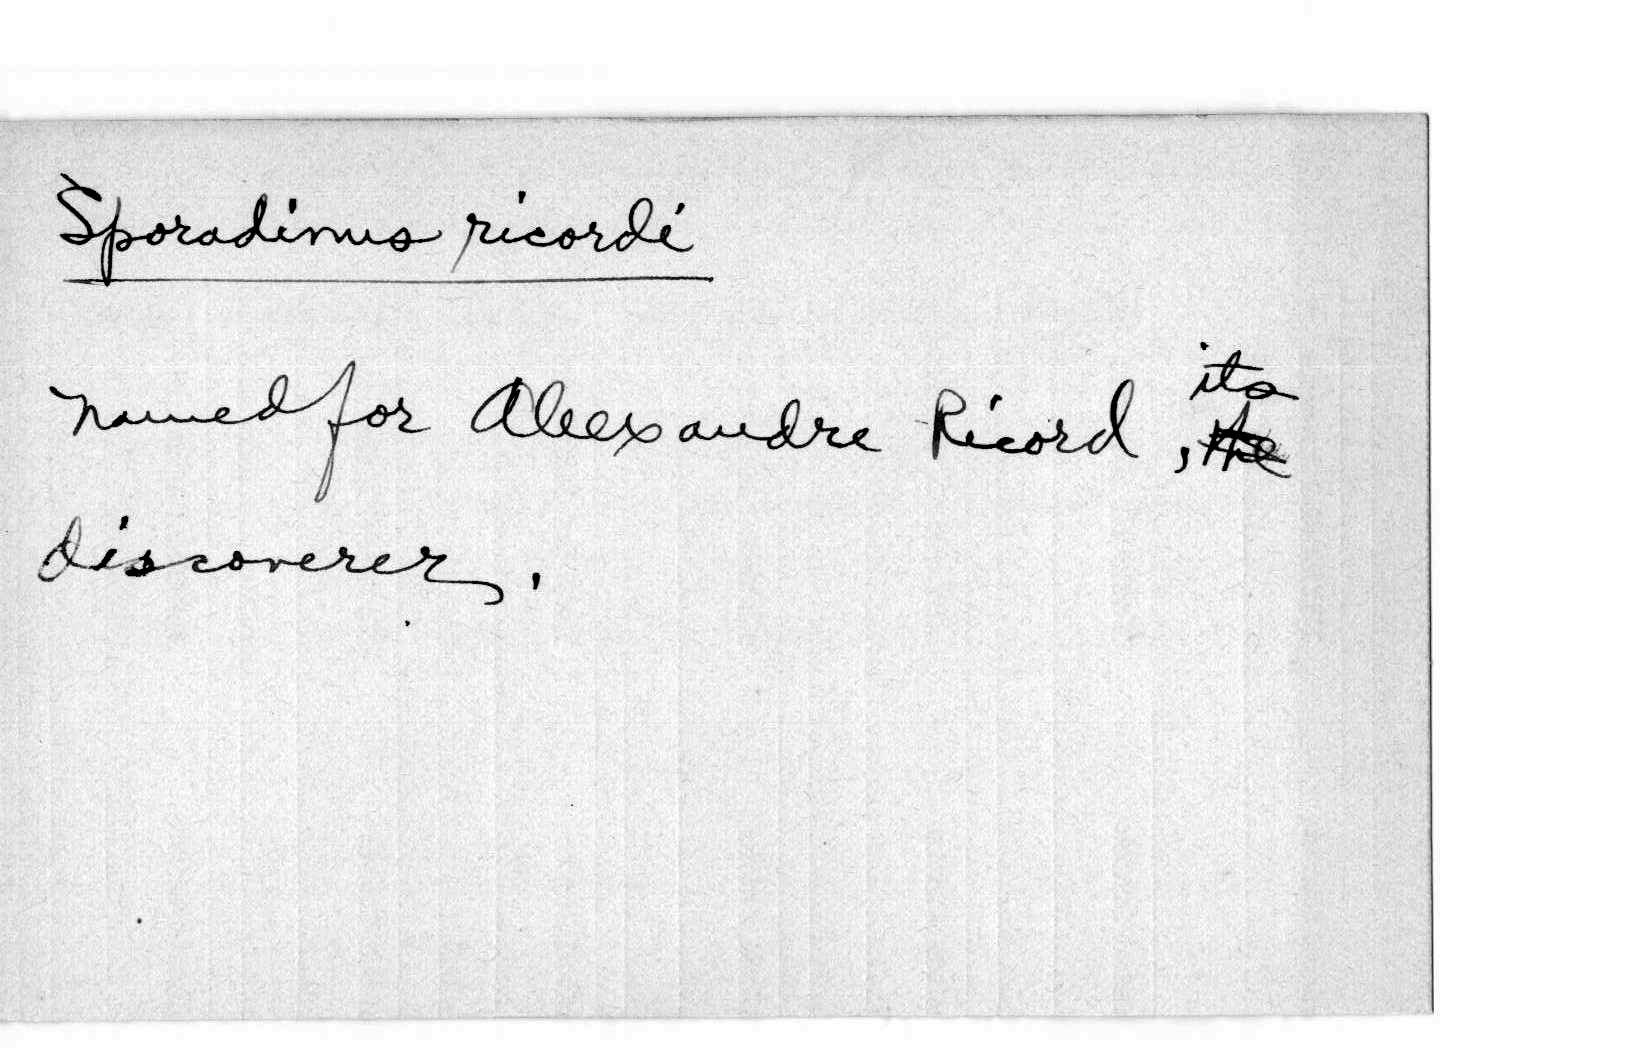 Sporadinus ricordi
named for Aleexandre Ricord, its
discoverer.